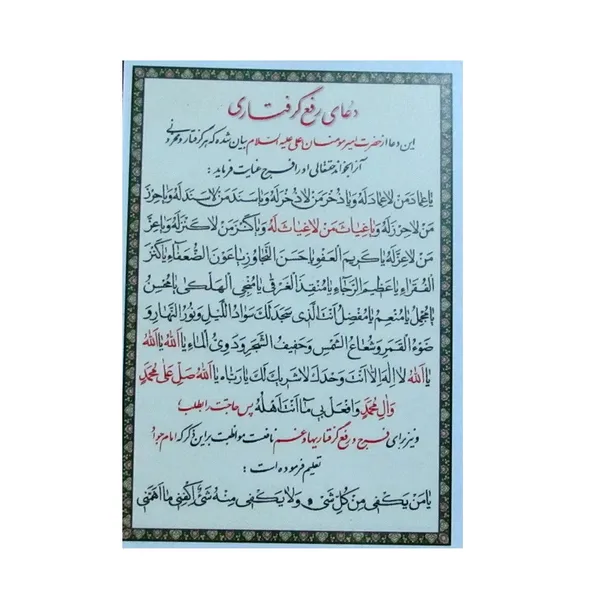 دعای رفع گرفتاری
این دعا از حضرت امیرمومنان علی علیه السلام بیان شده که هر گرفتار و محزونی
آنرا بخواند حقتعالی او را فرج عنایت فرماید :
یا عِمادَ مَن لا عِمادَ لَهُ وَیا ذُخرَ مَن لا ذُخرَ لَهُ وَیا سَنَدَ مَن لا سَنَدَ لَهُ وَیا حِرزَ
مَن لا حِرزَ لَهُ وَیا غِیاثَ مَن لا غِیاثَ لَهُ وَیا کَنزَ مَن لا کَنزَ لَهُ وَیا عِزَّ
مَن لا عِزَّ لَهُ یا کَریمَ العَفوِ یا حَسَنَ التَّجاوُزِ یا عَونَ الضُّعَفاءِ یا کَنزَ
الفُقَراءِ یا عَظیمَ الرَّجاءِ یا مُنقِذَ الغَرقی یا مُنجِیَ الهَلکی یا مُحسِنُ
یا مُجمِلُ یا مُنعِمُ یا مُفضِلُ اَنتَ الَّذی سَجَدَ لَکَ سَوادُ اللَّیلِ وَ نورُ النَّهارِ وَ
ضَوءُ القَمَرِ وَ شُعاعُ الشَّمسِ وَ حَفیفُ الشَّجَرِ وَ دَوِیُّ الماءِ یا اَللهُ یا اَللهُ
یا اَللهُ لا اِلهَ اِلّا اَنتَ وَحدَکَ لا شَریکَ لَکَ یا رَبّاهُ یا اَللهُ صَلِّ عَلی مُحَمَّدٍ
وَ آلِ مُحَمَّدٍ وَ افعَل بی ما اَنتَ اَهلُهُ پس حاجتت را بطلب؛
و نیز برای فرج و رفع گرفتاریها و غم نافعست مواظبت بر این ذکر که امام جواد
تعلیم فرموده است :
یا مَن یَکفی مِن کُلِّ شَیءٍ وَ لا یَکفی مِنهُ شَیءٌ اِکفِنی ما اَهَمَّنی